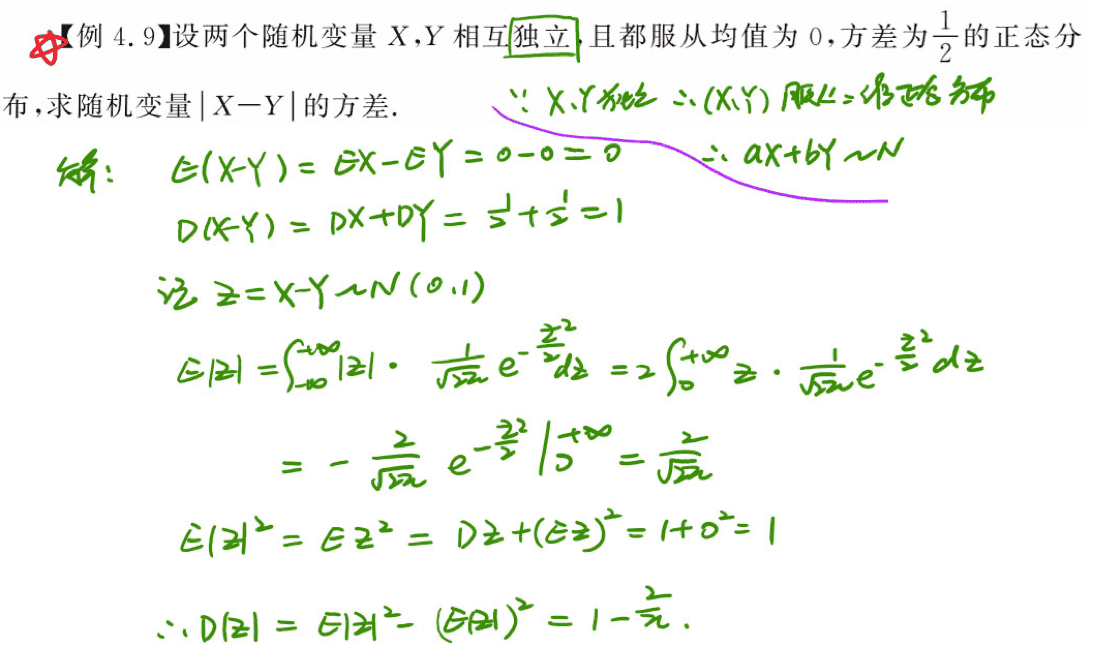 【例 4.9】设两个随机变量 X,Y 相互独立,且都服从均值为 0,方差为 1/2 的正态分
布,求随机变量|X-Y|的方差.
∵ X、Y独立 ∴(X、Y) 服从二维正态分布
∴ aX+bY~N
解: E(X-Y) = EX-EY = 0-0 = 0
D(X-Y) = DX+DY = 1/2 + 1/2 = 1
记 Z = X-Y ~ N(0,1)
E|Z| = ∫_{-∞}^{+∞} |Z| · 1/√2π e^{-z²/2} dz = 2∫_0^{+∞} z · 1/√2π e^{-z²/2} dz
= - 2/√2π e^{-z²/2} |_0^{+∞} = 2/√2π
E|Z|² = EZ² = DZ+(EZ)² = 1+0² = 1
∴ D|Z| = E|Z|² - (E|Z|)² = 1 - 2/π.